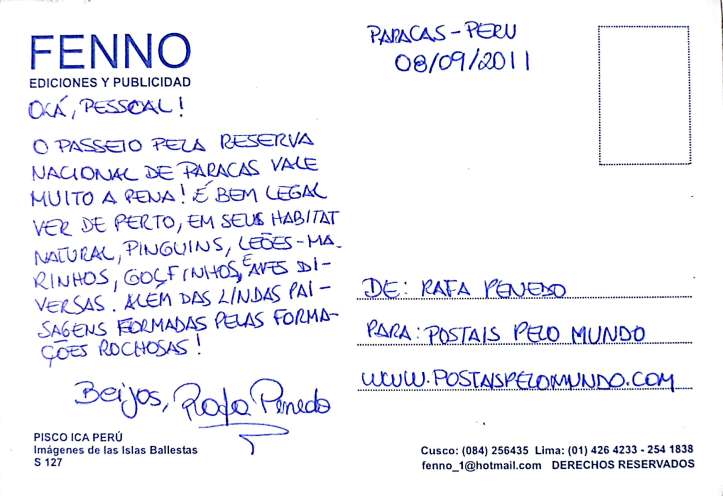 FENNO
EDICIONES Y PUBLICIDAD
OLÁ, PESSOAL!
O PASSEIO PELA RESERVA
NACIONAL DE PARACAS VALE
MUITO A PENA! É BEM LEGAL
VER DE PERTO, EM SEUS HABITAT
NATURAL, PINGUINS, LEÕES-MA-
RINHOS, GOLFINHOS, E AVES DI-
VERSAS. ALÉM DAS LINDAS PAI-
SAGENS FORMADAS PELAS FORMA-
ÇÕES ROCHOSAS!
Beijos, Rafa Penedo
PISCO ICA PERÚ
Imágenes de las Islas Ballestas
S 127
PARACAS - PERU
08/09/2011
DE: RAFA PENEDO
PARA: POSTAIS PELO MUNDO
WWW.POSTAISPELOMUNDO.COM
Cusco: (084) 256435 Lima: (01) 426 4233 - 254 1838
fenno_1@hotmail.com DERECHOS RESERVADOS